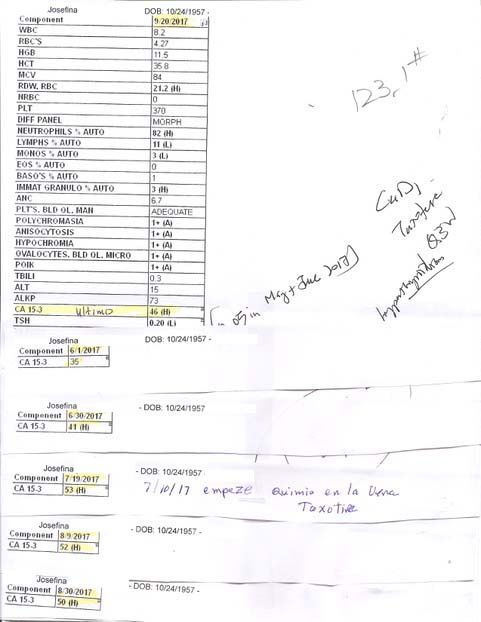 Josefina DOB: 10/24/1957 -
Component 9/20/2017
WBC 8.2
RBC'S 4.27
HGB 11.5
HCT 35.8
MCV 84
RDW, RBC 21.2 (H)
NRBC 0
PLT 370
DIFF PANEL MORPH
NEUTROPHILS % AUTO 82 (H)
LYMPHS % AUTO 11 (L)
MONOS % AUTO 3 (L)
EOS % AUTO 0
BASO'S % AUTO 1
IMMAT GRANULO % AUTO 3 (H)
ANC 6.7
PLT'S, BLD QL. MAN ADEQUATE
POLYCHROMASIA 1+ (A)
ANISOCYTOSIS 1+ (A)
HYPOCHROMIA 1+ (A)
OVALOCYTES, BLD QL. MICRO 1+ (A)
POIK 1+ (A)
TBILI 0.3
ALT 15
ALKP 73
CA 15-3 Ultimo 46 (H)
TSH 0.20 (L)
123.1#
Taxotere
Q 3 W
in May + June 2017
Josefina - DOB: 10/24/1957
Component 6/1/2017
CA 15-3 35
Josefina - DOB: 10/24/1957
Component 6/30/2017
CA 15-3 41 (H)
Josefina - DOB: 10/24/1957
Component 7/19/2017
CA 15-3 53 (H)
7/10/17 empeze quimio en la vena
Josefina - DOB: 10/24/1957
Component 8/9/2017
CA 15-3 52 (H)
Josefina - DOB: 10/24/1957
Component 8/30/2017
CA 15-3 50 (H)